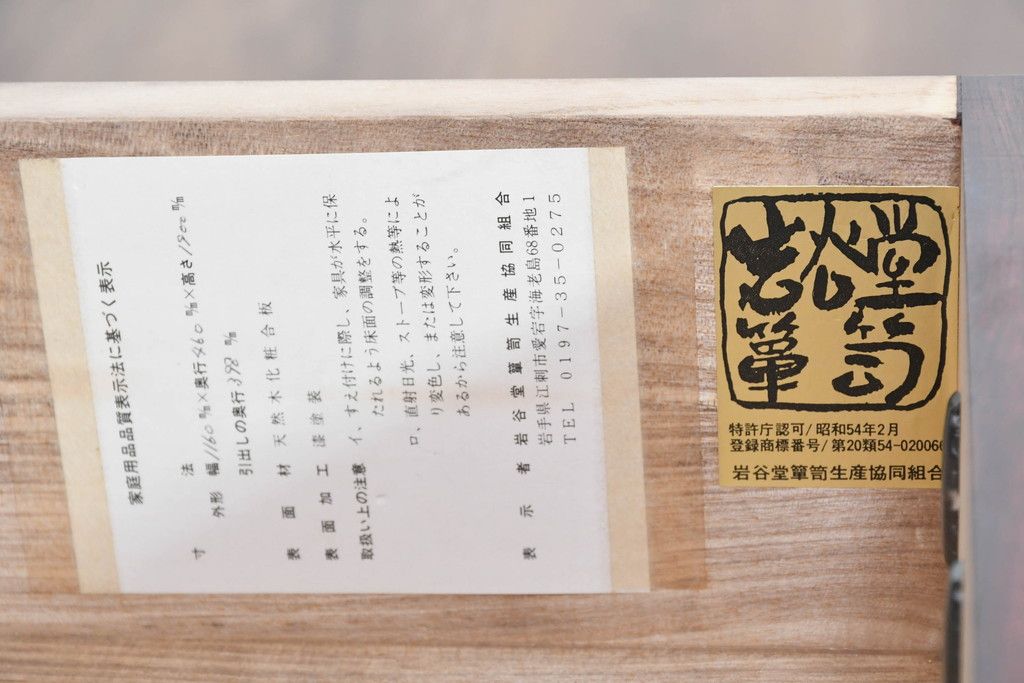 家庭用品品質表示法に基づく表示
寸法
外形 幅1160m/m×奥行460m/m×高さ1900m/m
引出しの奥行398m/m
表面材 天然木化粧合板
表面加工 漆塗装
取扱い上の注意 イ、すえ付けに際し、家具が水平に保
たれるよう床面の調整をする。
ロ、直射日光、ストーブ等の熱等によ
り変色し、または変形することが
あるから注意して下さい。
表示者 岩谷堂簞笥生産協同組合
岩手県江刺市愛宕字海老島68番地1
TEL 0197-35-0275
岩谷堂
簞笥
特許庁認可/昭和54年2月
登録商標番号/第20類54-020066
岩谷堂簞笥生産協同組合